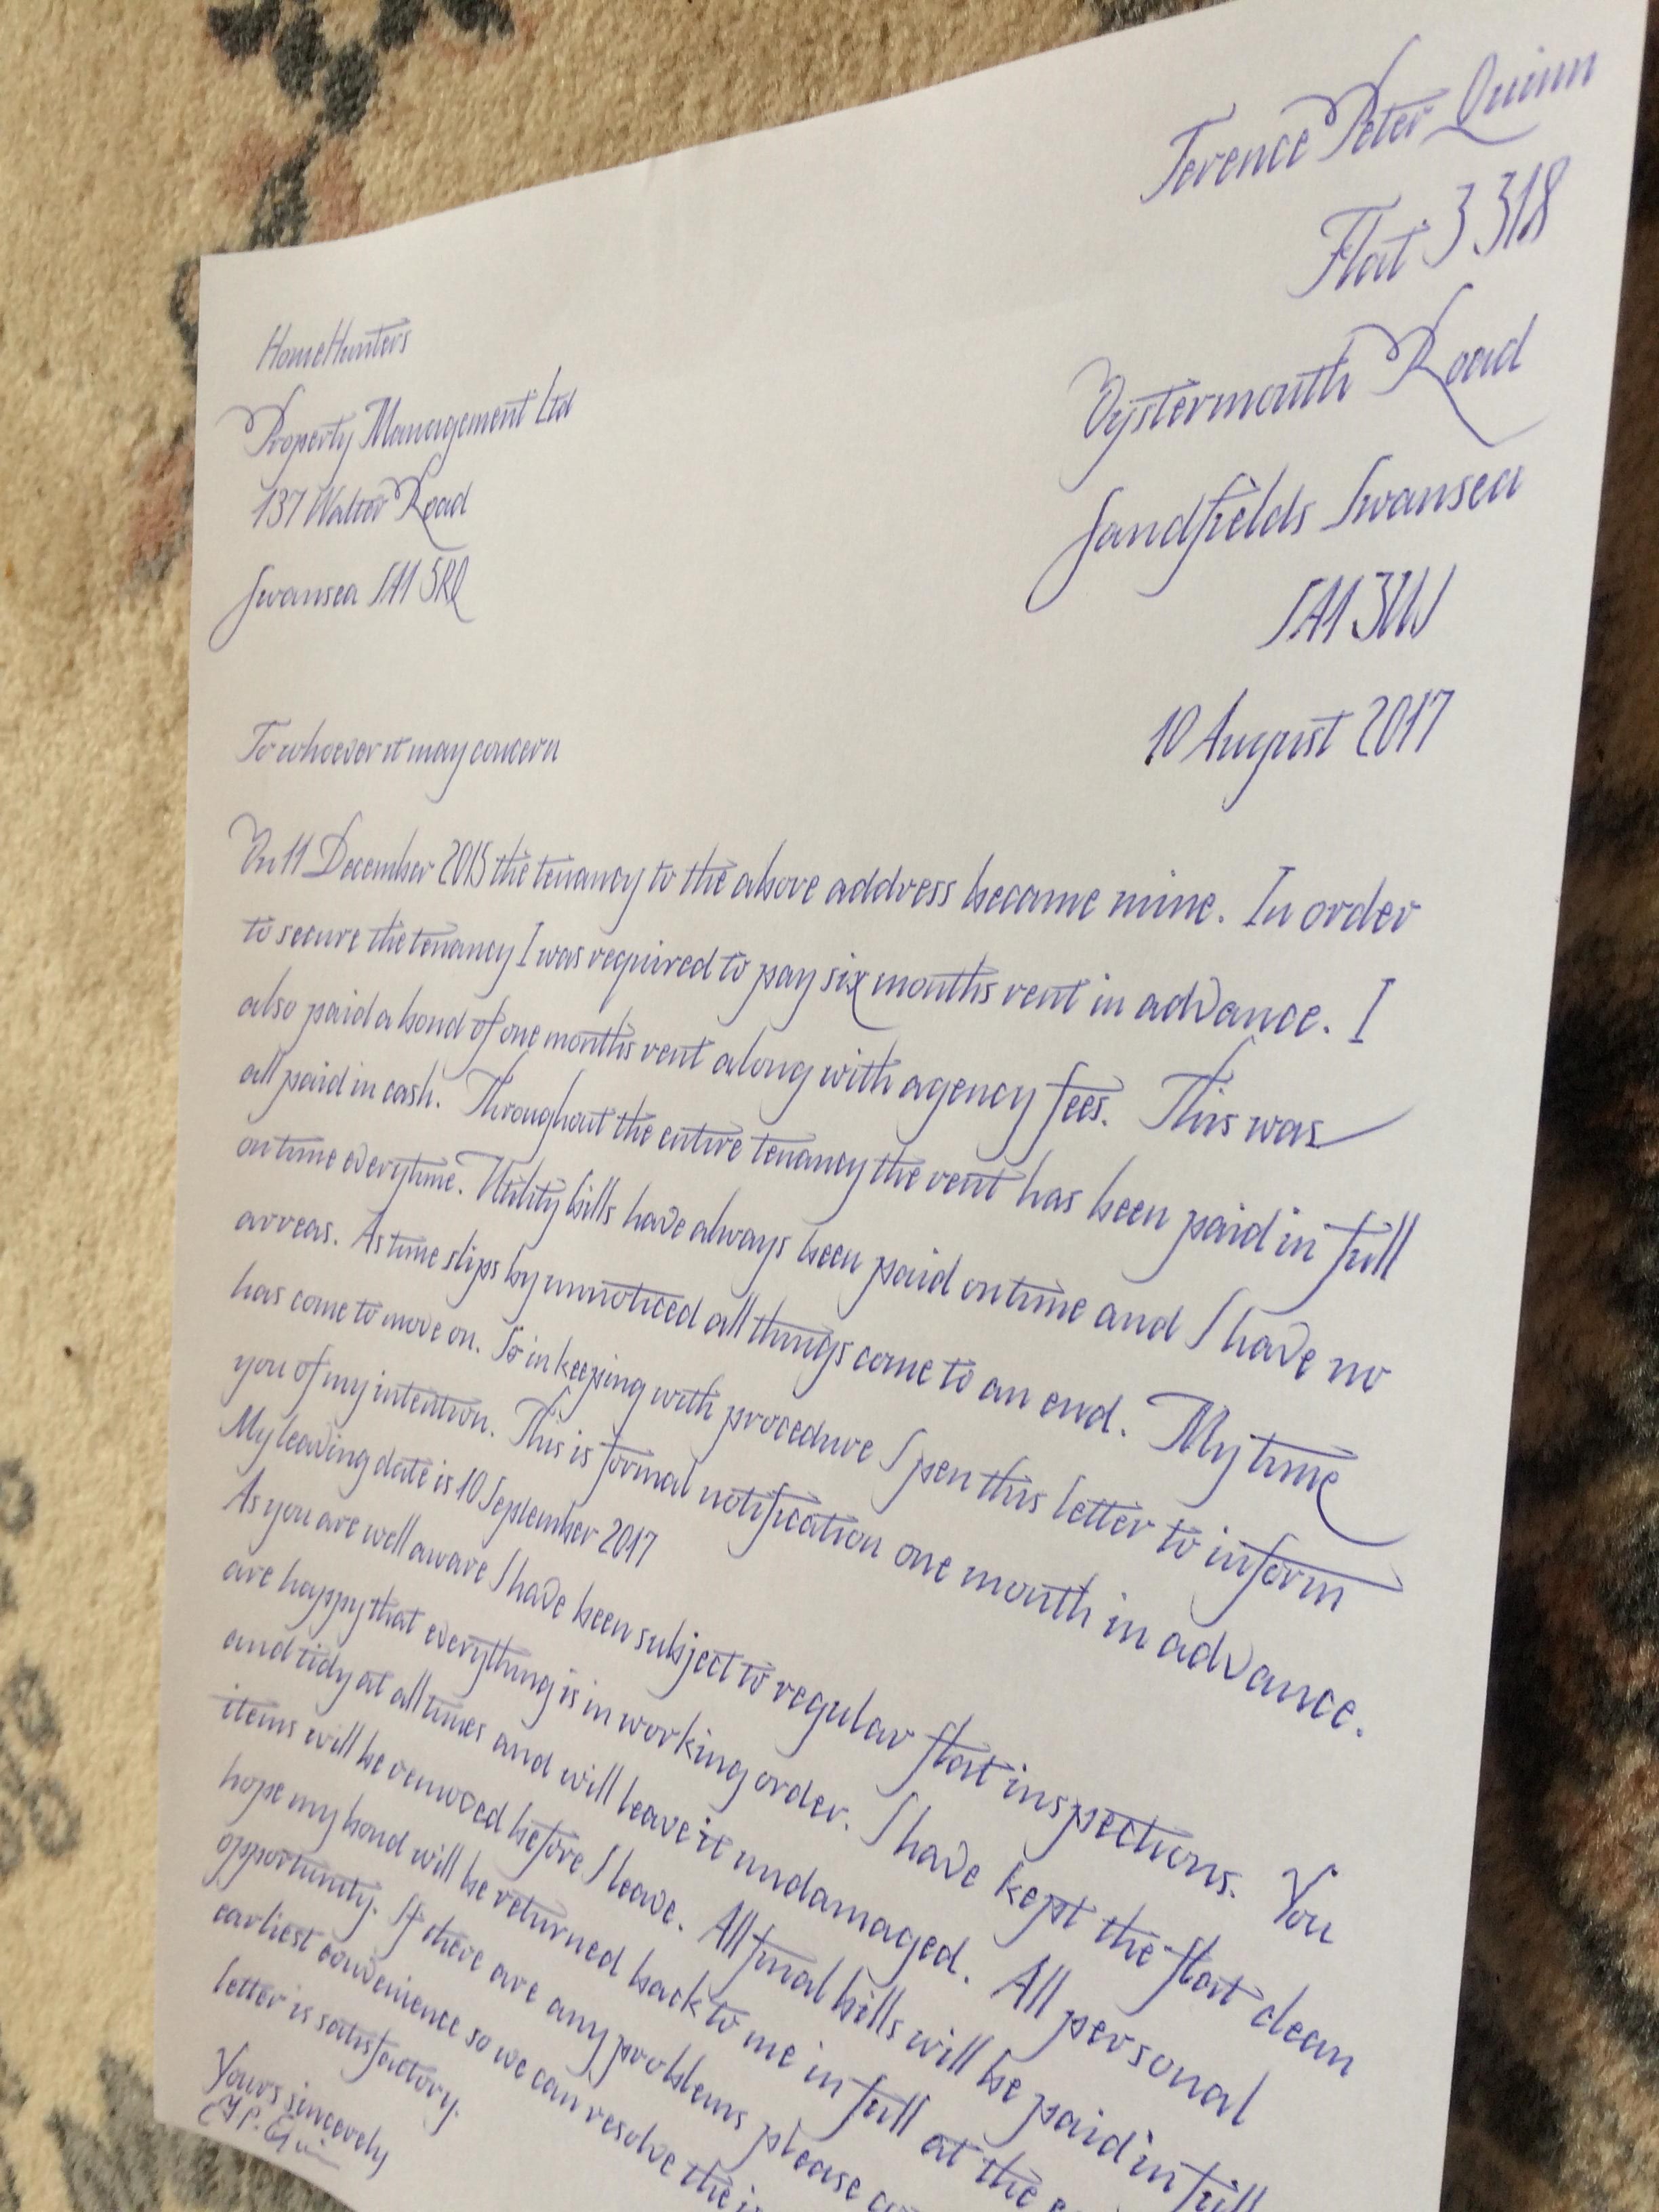 Terence Peter Quinn
Flat 3 318
Oystermouth Road
Sandfields Swansea
SA1 3UJ
10 August 2017
HomeHunters
Property Management Ltd
137 Walter Road
Swansea SA1 5RQ
To whoever it may concern
On 11 December 2015 the tenancy to the above address became mine. In order
to secure the tenancy I was required to pay six months rent in advance. I
also paid a bond of one months rent along with agency fees. This was
all paid in cash. Throughout the entire tenancy the rent has been paid in full
on time everytime. Utility bills have always been paid on time and I have no
arreas. As time slips by unnoticed all things come to an end. My time
has come to move on. So in keeping with procedure I pen this letter to inform
you of my intention. This is formal notification one month in advance.
My leaving date is 10 September 2017
As you are well aware I have been subject to regular flat inspections. You
are happy that everything is in working order. I have kept the flat clean
and tidy at all times and will leave it undamaged. All personal
items will be removed before I leave. All final bills will be paid in full
hope my bond will be returned back to me in full at the
opportunity. If there are any problems please
earliest convenience so we can resolve the
letter is satisfactory.
Yours sincerely